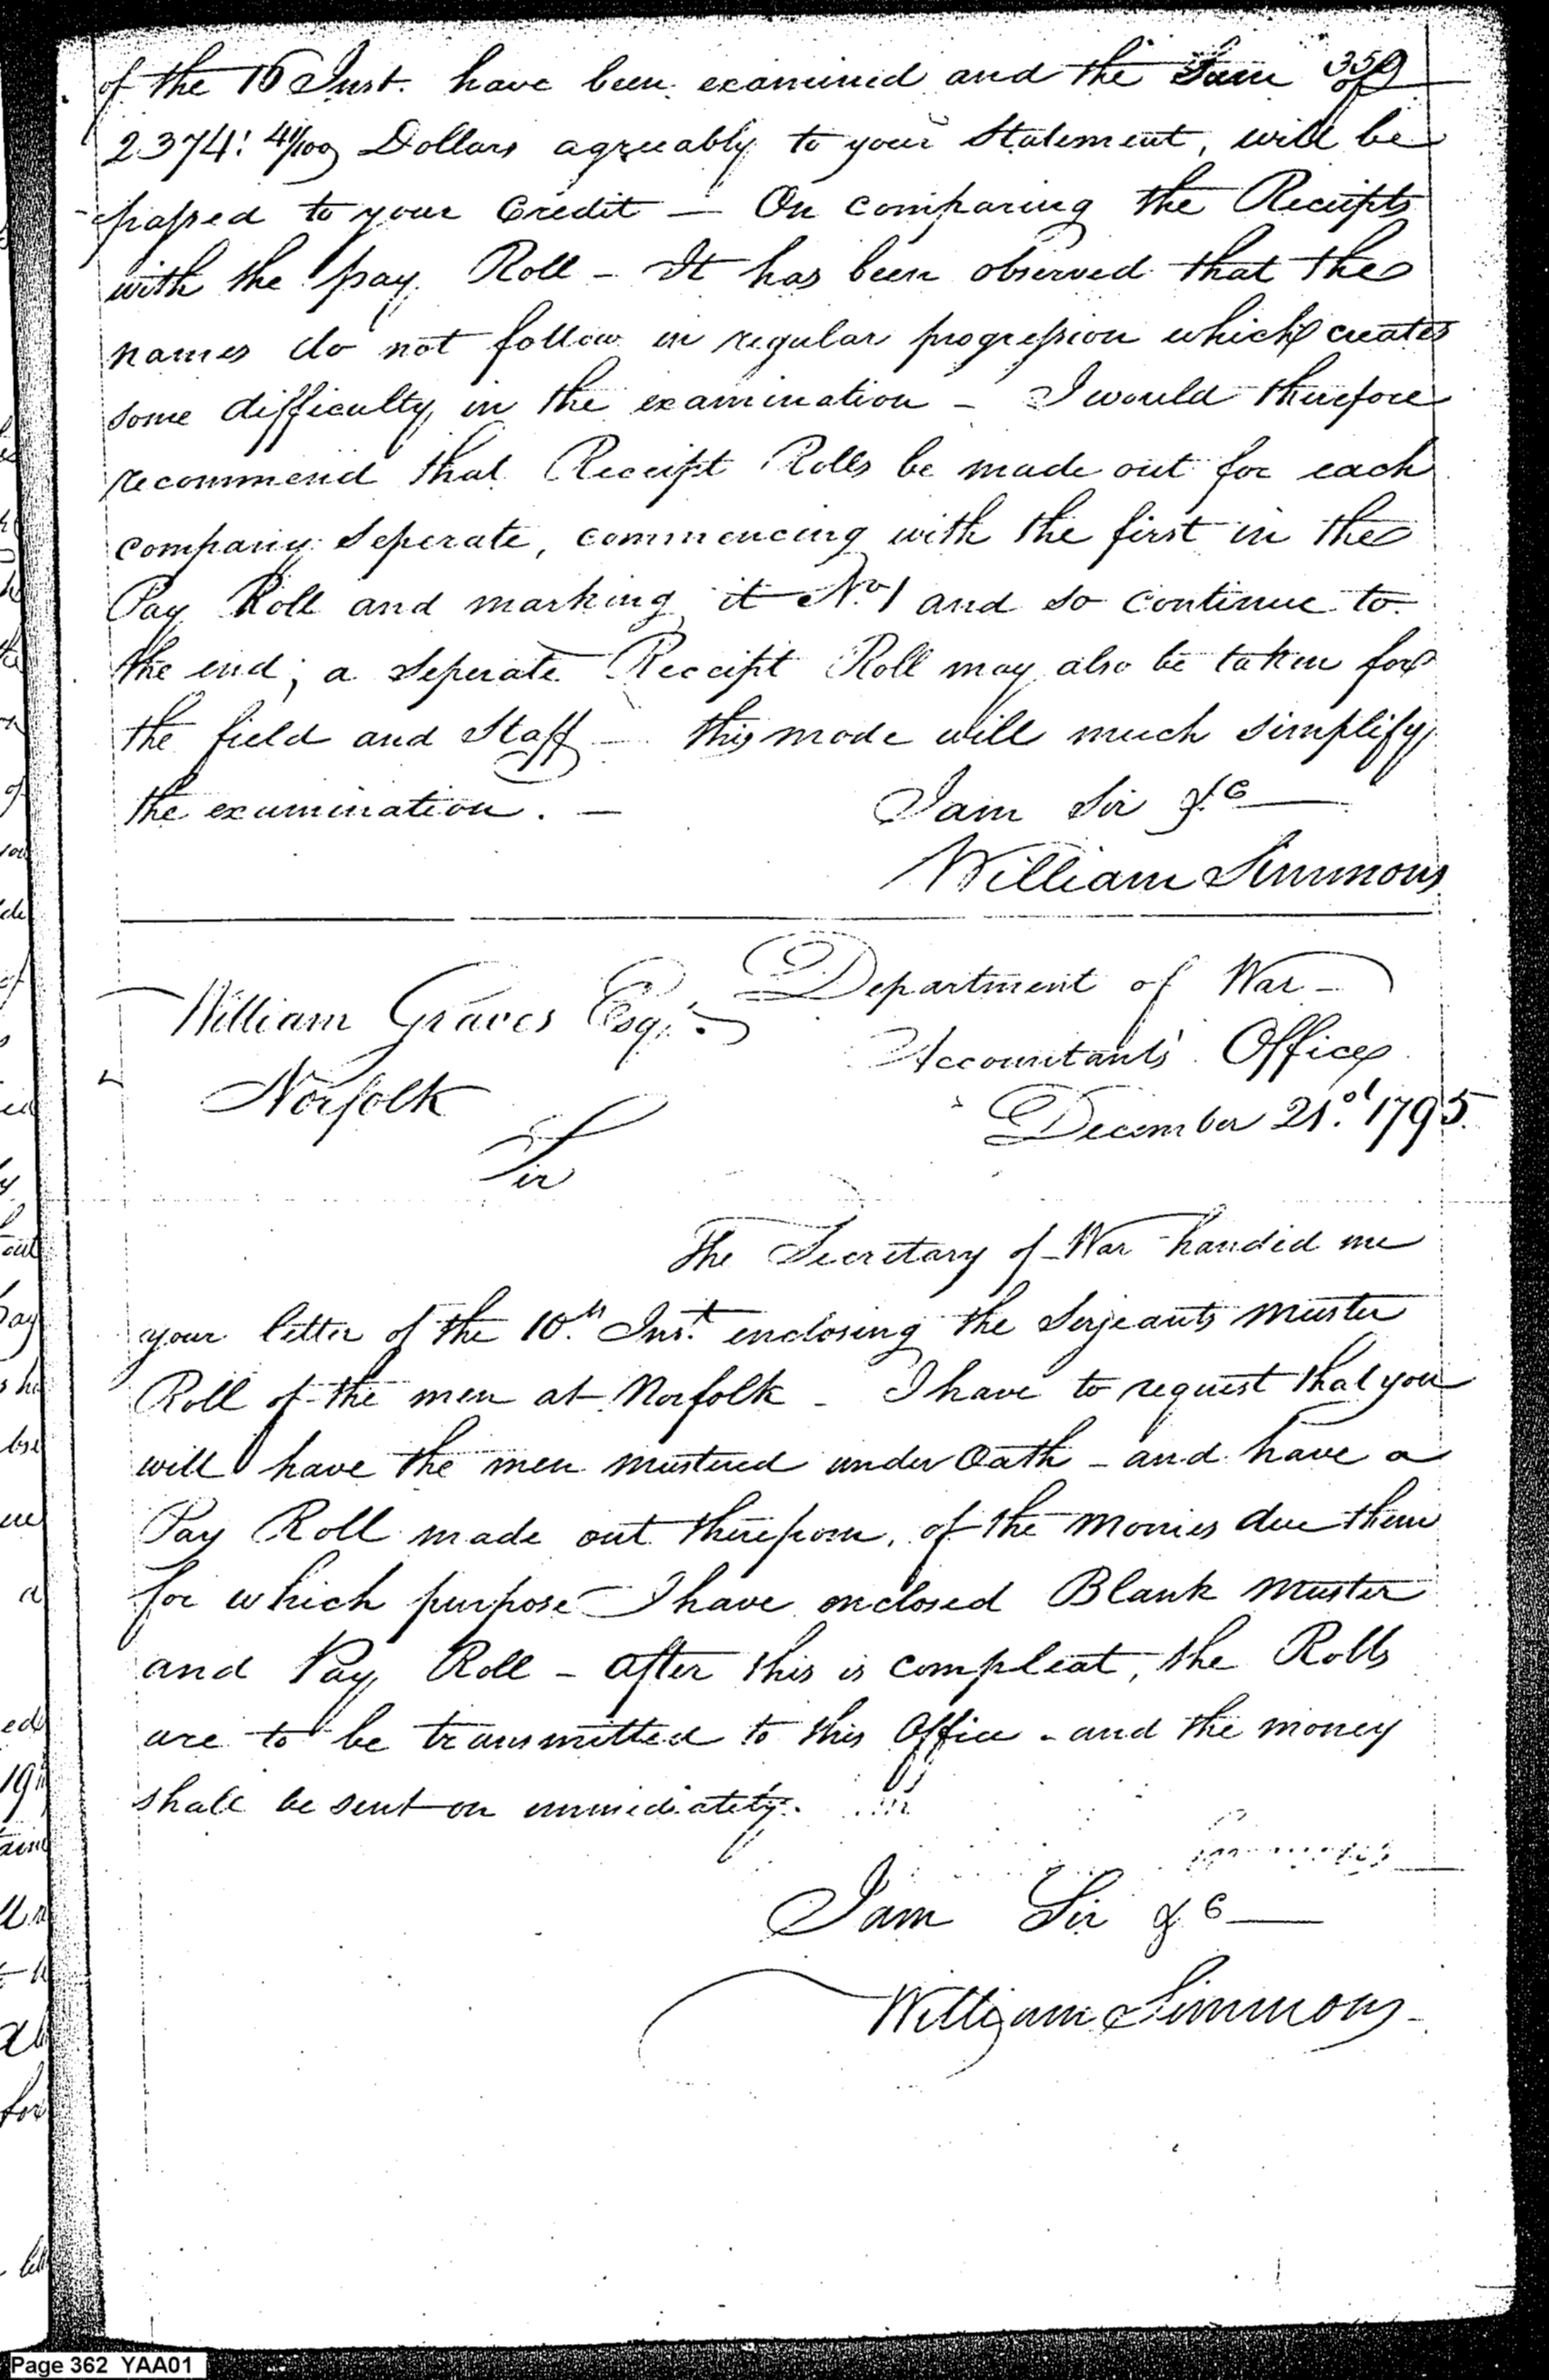 359
of the 16 Inst. have been examined and the Sum of
2374: 41/100 Dollars agreeably to your Statement, will be
passed to your Credit — On comparing the Receipts
with the pay Roll - It has been observed that the
names do not follow in regular progression which creates
some difficulty in the examination - I would therefore
recommend that Receipt Rolls be made out for each
company seperate, commencing with the first in the
Pay Roll and marking it No. 1 and so continue to
the end; a seperate Receipt Roll may also be taken for
the field and Staff - this mode will much simplify
the examination. —
I am Sir &c —
William Simmons
William Graves Esqr.
Norfolk
Department of War -
Accountants Office
December 21st. 1795.
Sir
The Secretary of War handed me
your letter of the 10th. Inst. enclosing the Serjeants Muster
Roll of the men at Norfolk - I have to request that you
will have the men mustered under Oath - and have a
Pay Roll made out therefrom, of the monies due them
for which purpose I have enclosed Blank Muster
and Pay Roll - after this is compleat, the Rolls
are to be transmitted to this Office - and the money
shall be sent on immediately.
I am Sir &c —
William Simmons
Page 362 YAA01